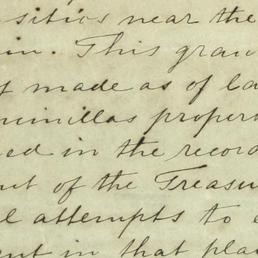 sition near the
in. This gran
made as of la
uinillas proper
ed in the record
nt of the Treasu
l attempts to
ent in that pla